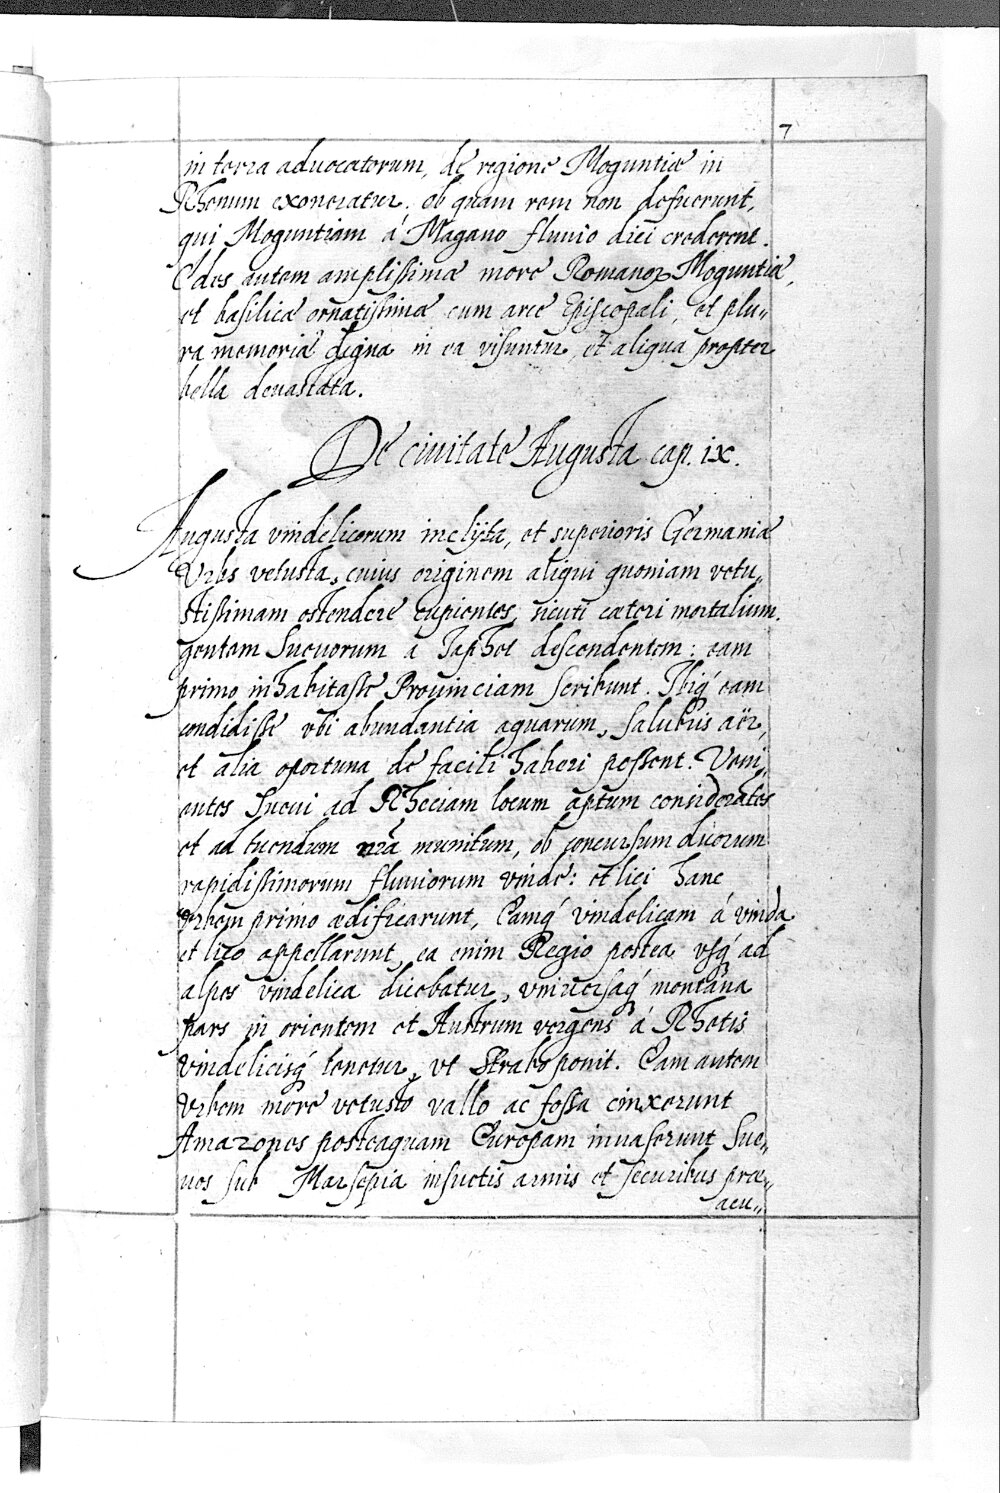 7
in terra advocatorum, de regione Moguntiæ in
Rhenum exoneratur. ob quam rem non defuerunt,
qui Moguntiam á Magano fluvio dici crederent.
Edes autem amplissimæ more Romanoꝝ Moguntiæ,
et basilicæ ornatissimæ cum arce Episcopali, et plu„
ra memoriæ digna in ea visuntur, et aliqua propter
bella devastata.
De civitate Augusta cap. ix.
Augusta vindelicorum inclÿta, et superioris Germaniæ
Vrbs vetusta, cuius originem aliqui quoniam vetu„
stissimam ostendere cupientes, sicuti cæteri mortalium.
gentem Suevorum a Japhet descendentem: eam
primo inhabitasse Provinciam scribunt. Ibiq́ eam
condidisse vbi abundantia aquarum, salubris aër,
et alia oportuna de facili haberi possent. Veni„
entes Suevi ad Rheciam locum aptum considerātes
et ad tuendum nrā munitum, ob concursum duorum
rapidissimorum fluviorum vindę: et lici hanc
vrbem primo ædificarunt, Eamq́ vindelicam á vinda
et lico appellarunt, ea enim Regio postea vsq́ ad
alpes vindelica dicebatur, vniversaq́ montana
pars in orientem et Austrum vergens á Rhetis
vindelicisq́ tenetur, vt Strabo ponit. Eam autem
Vrbem more vetusto vallo ac fossa cinxerunt
Amazones posteaquam Europam invaserunt Sue„
vos sub Marsepia insuetis armis et securibus præ„
acu„